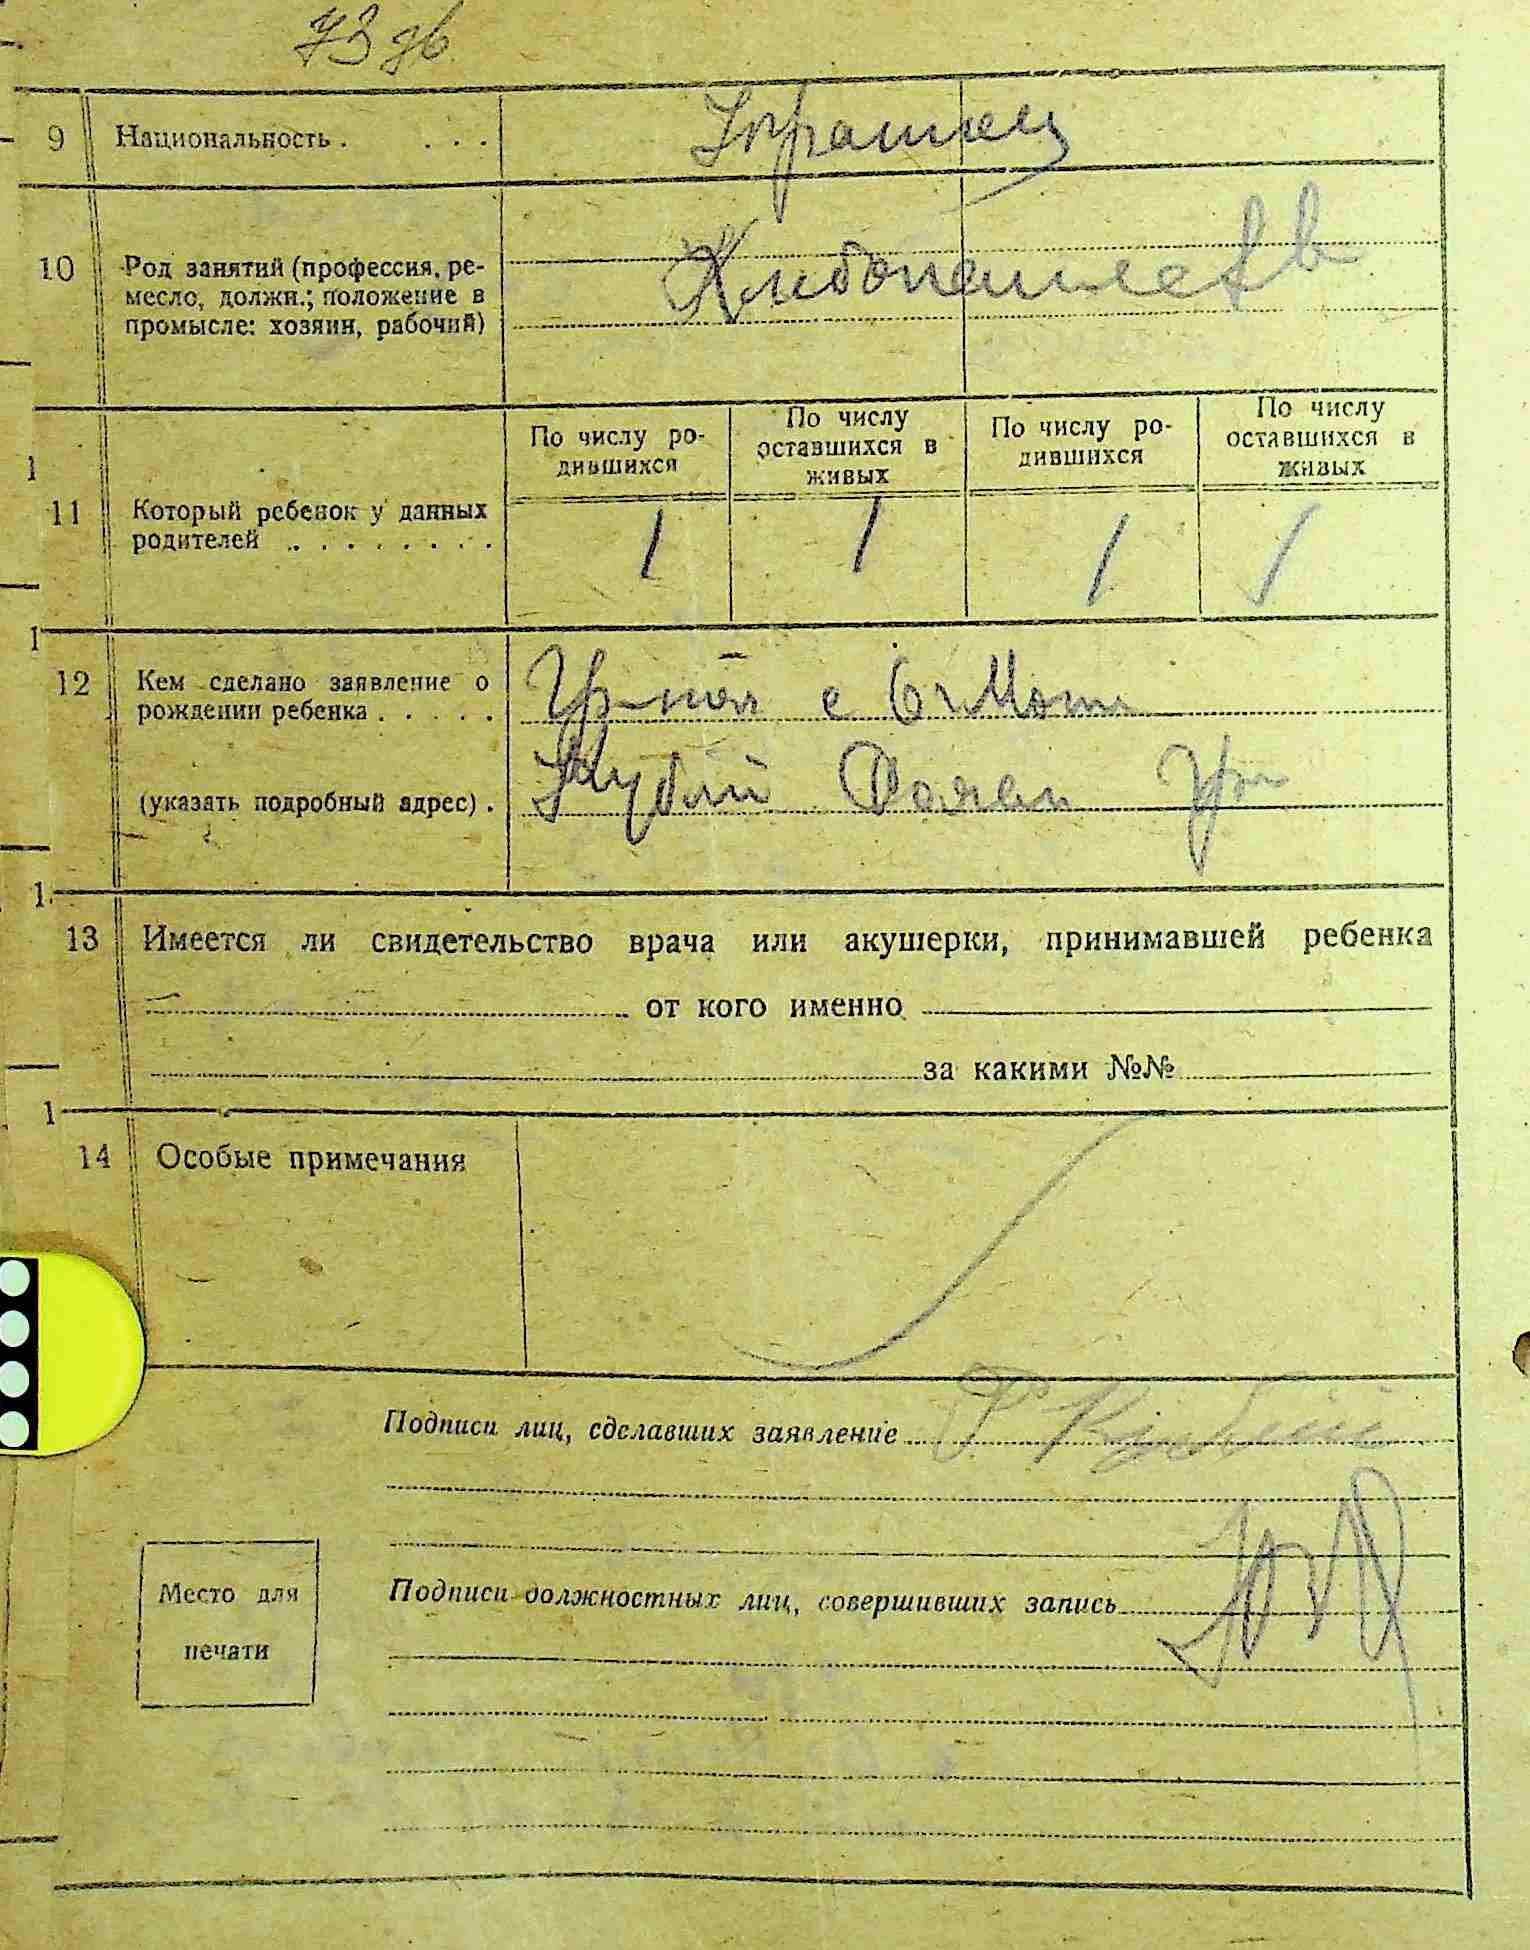 73 зв
9 Национальность . . . . Украинец
10 Род занятий (профессия, ре-
месло, должн.; положение в
промысле: хозяин, рабочий)
Хлебопашество
По числу ро-
дившихся
По числу
оставшихся в
живых
По числу ро-
дившихся
По числу
оставшихся в
живых
1
11 Который ребенок у данных
родителей . . . . . . . .
1 1 1 1
1
12 Кем сделано заявление о
рождении ребенка . . . . .
Гр-нол с
(указать подробный адрес) .
Кубій Роман Гр
1
13 Имеется ли свидетельство врача или акушерки, принимавшей ребенка
от кого именно
за какими №№
1
14 Особые примечания
Подписи лиц, сделавших заявление Р Кубіій
Место для
печати
Подписи должностных лиц, совершивших запись